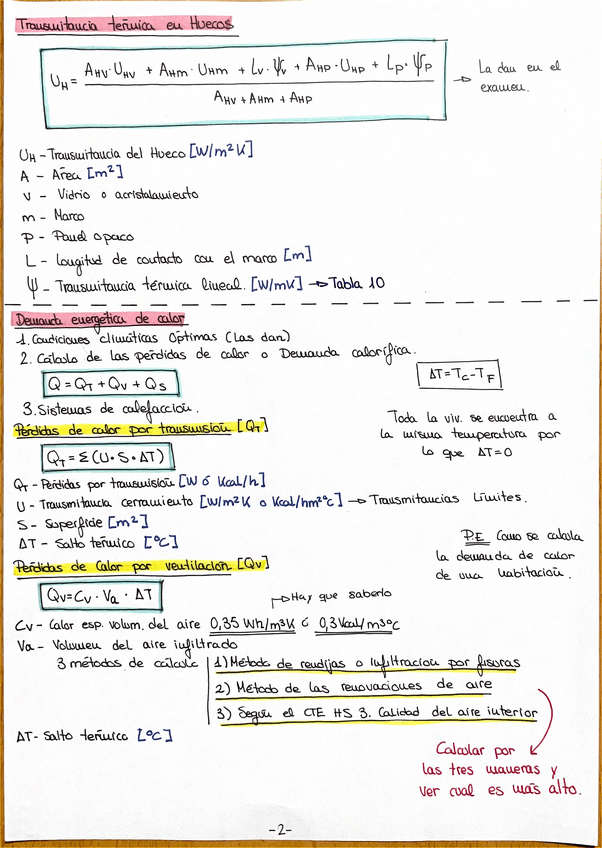 Transmitancia térmica en Huecos
U_H = (A_HV·U_HV + A_Hm·U_Hm + L_V·Ψ_V + A_HP·U_HP + L_P·Ψ_P) / (A_HV + A_Hm + A_HP) → La dan en el
examen.
U_H - Transmitancia del Hueco [W/m²K]
A - Área [m²]
V - Vidrio o acristalamiento
m - Marco
P - Panel opaco
L - Longitud de contacto con el marco [m]
Ψ - Transmitancia térmica lineal. [W/mK] → Tabla 10
Demanda energética de calor
1. Condiciones climáticas Óptimas (Las dan)
2. Cálculo de las pérdidas de calor o Demanda calorífica.
Q = Q_T + Q_V + Q_S
ΔT = T_C - T_F
3. Sistemas de calefacción.
Pérdidas de calor por transmisión [Q_T]
Toda la viv. se encuentra a
la misma temperatura por
lo que ΔT=0
Q_T = Σ(U·S·ΔT)
Q_T - Pérdidas por transmisión [W ó Kcal/h]
U - Transmitancia cerramiento [W/m²K o Kcal/hm²ºC] → Transmitancias Límites.
S - Superficie [m²]
ΔT - Salto térmico [ºC]
P.E Como se calcula
la demanda de calor
de una habitación.
Pérdidas de Calor por ventilación [Q_V]
Q_V = C_V · V_a · ΔT
→ Hay que saberlo
C_V - Calor esp. volum. del aire 0,35 Wh/m³K ó 0,3 Kcal/m³ºC
V_a - Volumen del aire infiltrado
3 métodos de cálculo
1) Método de rendijas o Infiltración por fisuras
2) Método de las renovaciones de aire
3) Según el CTE HS 3. Calidad del aire interior
ΔT - Salto térmico [ºC]
Calcular por
las tres maneras y
ver cual es más alto.
-2-